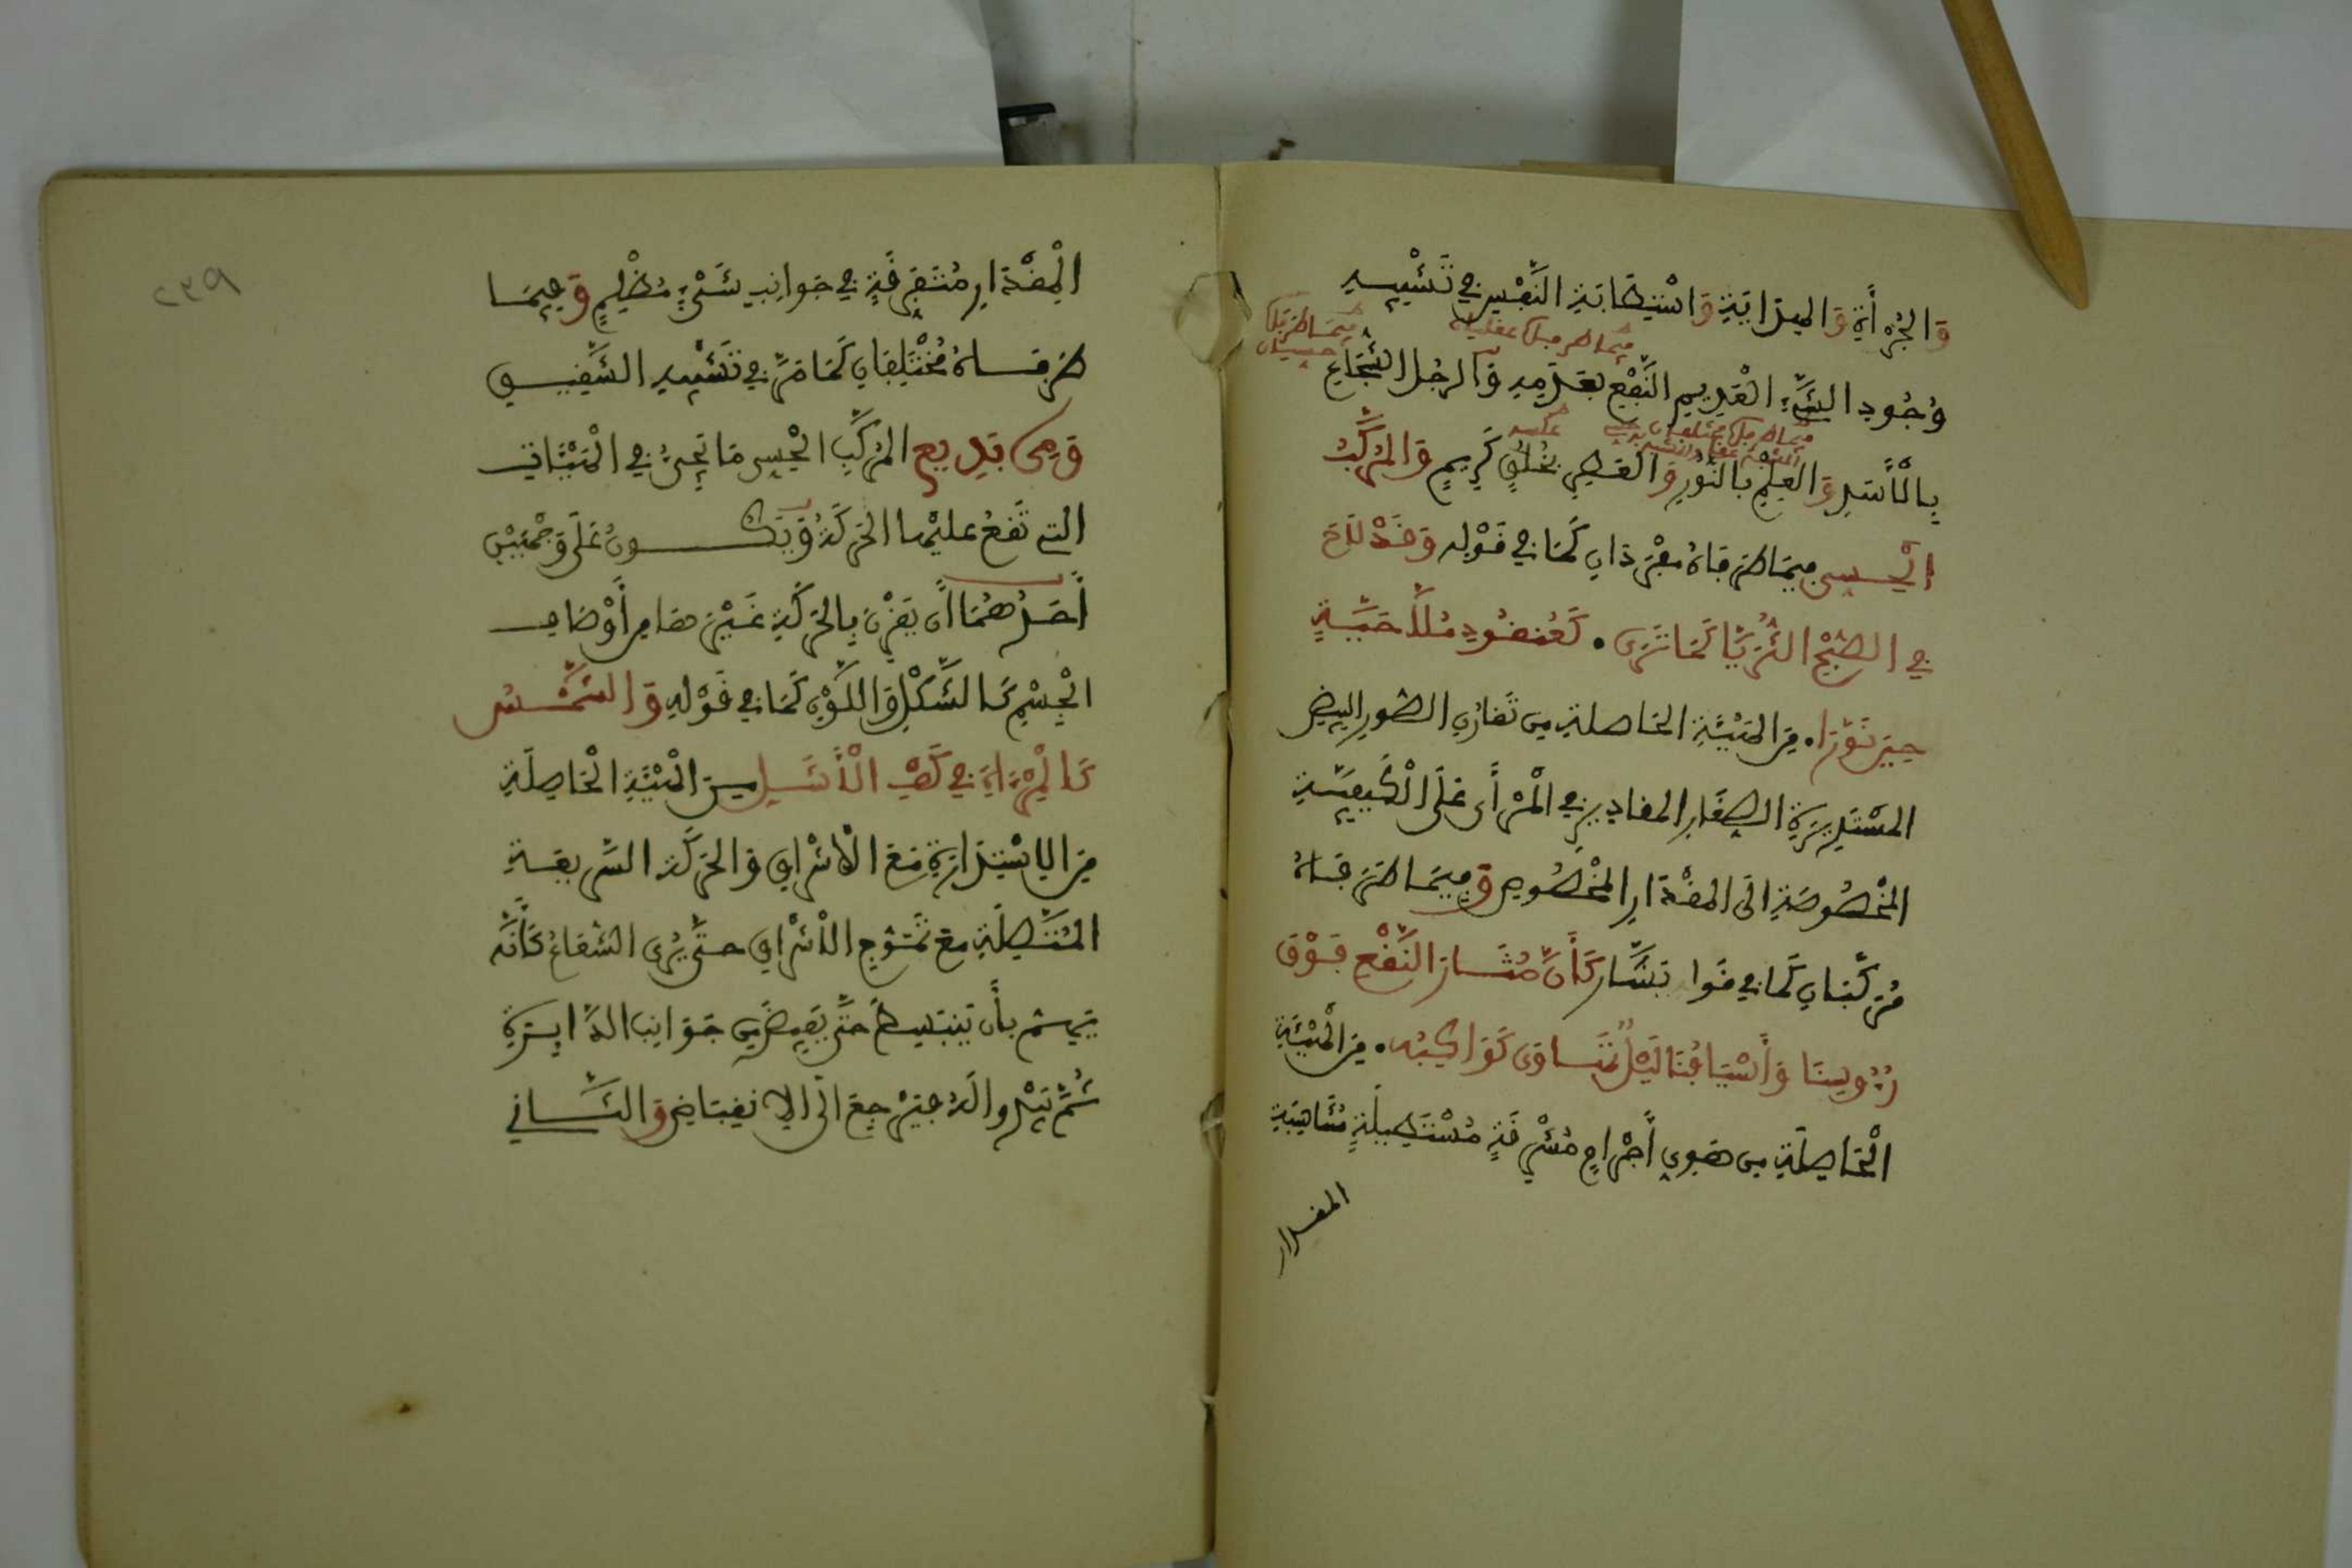 وَالجُرْأَةِ وَالهِدَايَةِ وَاسْتِطَابَةِ النَّفْسِ فِي تَشْبِيهِ
فيما طرفاه عقليان
فيما طرفاه حسيان
وُجُودِ الشَّيْءِ الْعَدِيمِ النَّفْعِ بِعَدَمِهِ وَالرجُلِ الشُّجَاعِ
بِالْأَسَدِ وَالعِلْمِ بِالنُّورِ وَالعِطْرِ بِخُلُقٍ كَرِيمٍ وَالمُرَكَّبُ
الْحِسِّي فِيمَا طَرَفَاهُ مُفْرَدَانِ كَمَا فِي قَوْلِهِ وَقَدْ لَاحَ
فِي الصُّبْحِ الثُّرَيَّا كَمَا تَرَى • كَعُنْقُودِ مُلَّاحِيَّةٍ
حِينَ نَوَّرَا • مِنَ الهَيْئَةِ الحَاصلةِ مِن تَقَارُنِ الصُّوَرِ البِيضِ
المُسْتَدِيرَةِ الصِّغَارِ المقاديرِ فِي الْمَرْأَى عَلَى الْكَيْفِيَّةِ
المَخْصُوصَةِ الَى المِقْدَارِ المَخْصُوصِ وَفِيمَا طَرَفَاهُ
مُرَكَّبَانِ كَمَا فِي قَوْلِ بَشَّار كَأَنَّ مُثَارَ النَّقْعِ فَوْقَ
رُءُوسِنَا وَأَسْيَافُنَا لَيْلٌ تَهَاوَى كَوَاكِبُه • مِنَ الْهَيْئَةِ
الْحَاصِلَةِ مِن هَوِيِّ أَجْرَامٍ مُشْرِقَةٍ مُسْتَطِيلَةٍ مُتَنَاسِبَةِ
المقدار
٢٣٩
الْمِقْدَارِ مُتَفَرِّقَةٍ فِي جَوَانِبِ شَيْءٍ مُظْلِمٍ وَفِيمَا
طَرَفَاهُ مُخْتَلِفَانِ كَمَا مَرَّ فِي تَشْبِيهِ الشَّقِيقِ
وَمِن بَدِيعِ المُرَكَّبِ الْحِسِي مَا يَجِيءُ فِي الْهَيْئَاتِ
التي تَقَعُ عليْهَا الحَرَكَةُ وَيَكُونُ عَلَى وَجْهَيْنِ
أَحَدُهُمَا أَن يَقْرِنَ بِالحَرَكَةِ غَيْرَهَا مِن أَوْصَافِ
الْجِسْمِ كَالشَّكْلِ وَاللَّوْنِ كَمَا فِي قَوْلِهِ وَالشَّمْسُ
كَالْمِرْءَاةِ فِي كَفِّ الْأَشَلِ مِنَ الْهَيْئَةِ الْحَاصِلَةِ
مِنَ الِاسْتِدَارَةِ مَعَ الْاشْرَاقِ وَالحَرَكَةِ السَّرِيعَةِ
المُتَّصِلَةِ مَعَ تَمَوُّجِ الْاشْرَاقِ حتَّى يُرَى الشُّعَاعُ كَأَنَّهُ
يَهِمُّ بأَن يَنْبَسِطَ حَتَّى يَفِيضَ مِن جَوَانِبِ الدَّايِرَةِ
ثُمَّ يَبْدُو لَهُ فَيَرْجِعُ الَى الِانْقِبَاضِ وَالثَّانِي